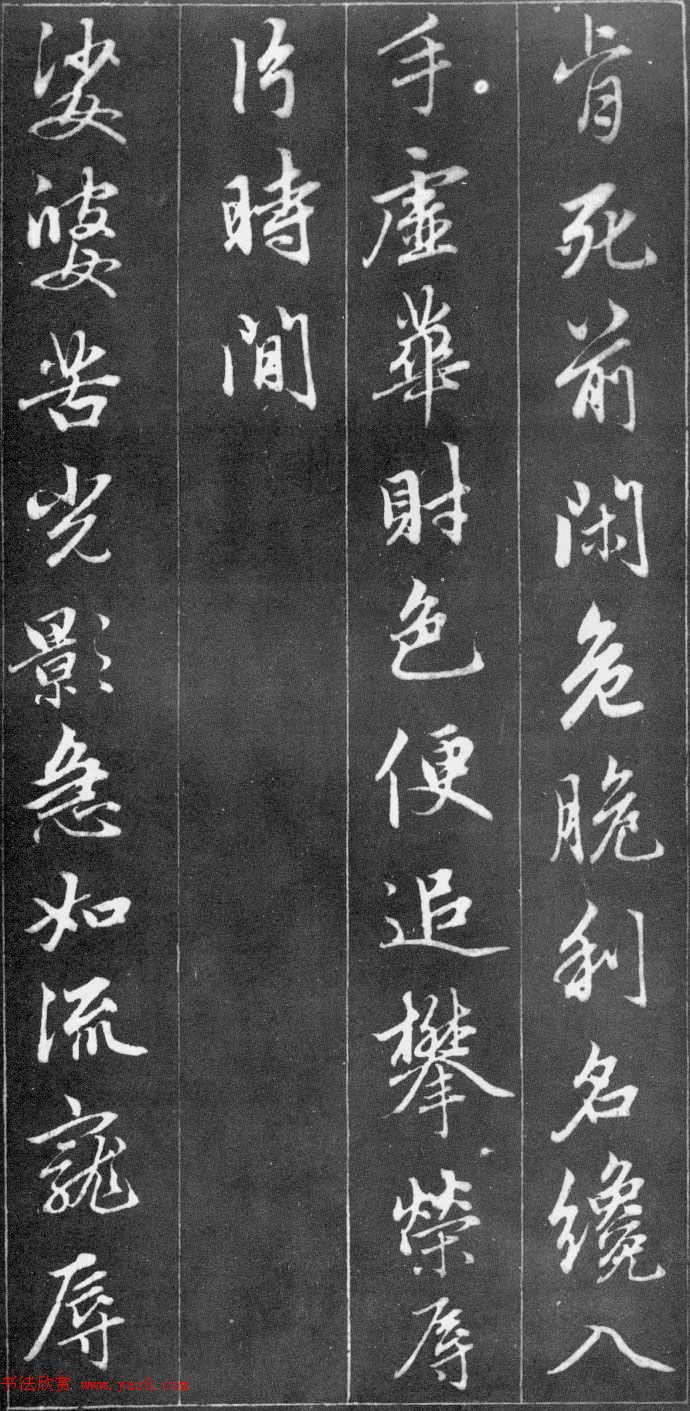 肯死前閑危脆利名纔入
手虛華財色便追攀榮辱
片時間
娑婆苦光影急如流寵辱
书法欣赏 www.yac8.com